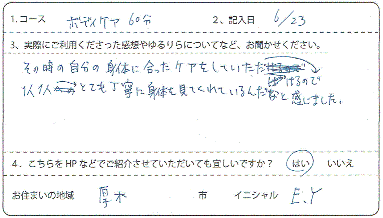 1.コース ボディケア 60分 2、記入日 6/23
3、実際にご利用くださった感想やゆるりらについてなど、お聞かせください。
その時の自分の身体に合ったケアをしていただけるので
とても丁寧に身体を見てくれているんだなと感じました。
4.こちらをHPなどでご紹介させていただいても宜しいですか? はい いいえ
お住まいの地域 厚木 市 イニシャル E.Y